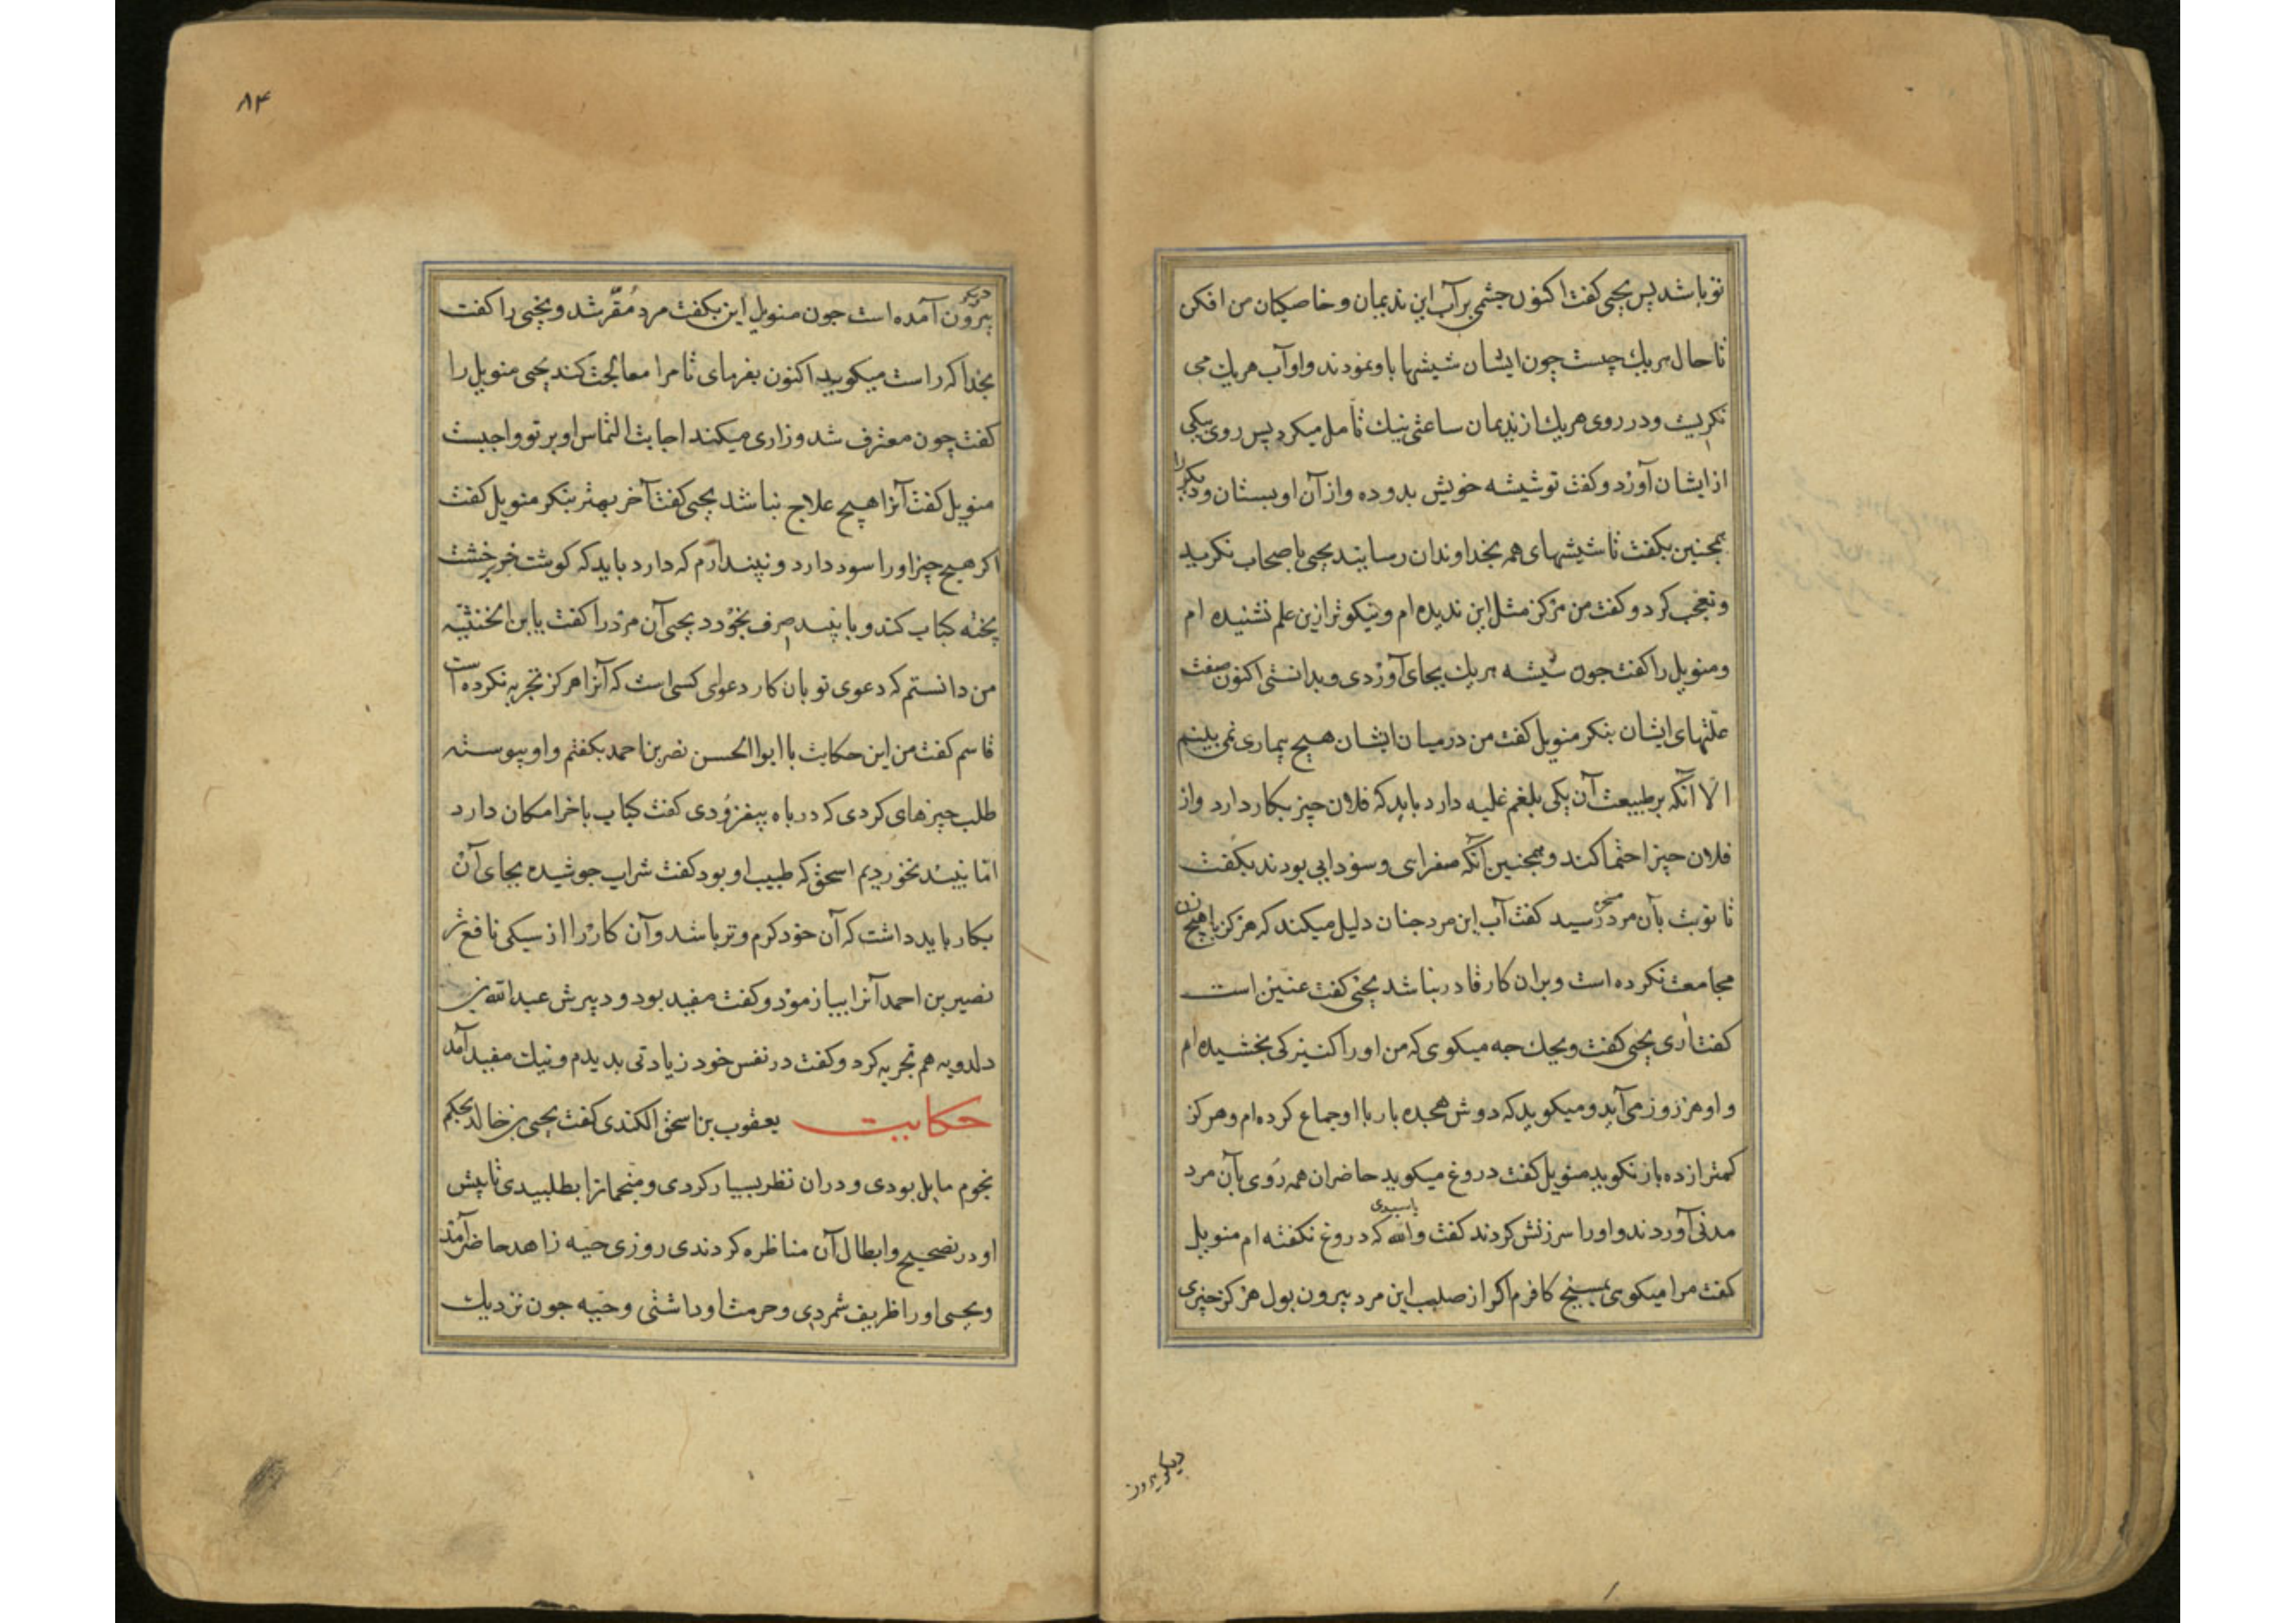 تو باشد پس یحیی کفت اکنون چشمی بر آب این ندیمان و خاصکیان من افکن
تا حال هریك چیست چون ایشان شیشها باو نمودند و او آب هریك می
نکریست و در روی هریك از ندیمان ساعتی نیك تأمل میکرد پس روی بیکی
از ایشان آورد و کفت تو شیشه خویش بدو ده و از آن او بستان و دیکر را
همجنین بکفت تا شیشهای همه بخداوندان رسانید یحیی باصحاب نکرید
و تعجب کرد و کفت من هرکز مثل این ندیده ام و نیکوتر ازین علم نشنیده ام
و منویل را کفت جون شیشه هریك بجای آوردی و بدانستی اکنون صفت
علّتهای ایشان بنکر منویل کفت من درمیان ایشان هیچ بیماری نمی بینم
الّا آنکه بر طبیعت آن یکی بلغم غلبه دارد باید که فلان چیز بکار دارد و از
فلان چیز احتما کند و همجنین آنکه صفرای و سودایی بودند بکفت
تا نوبت بآن مرد مسخره رسید کفت آب این مرد جنان دلیل میکند که هرکز با هیچ زن
مجامعت نکرده است و بران کار قادر نباشد یحیی کفت عنین است
کفت آری یحیی کفت ویحك جه میکوی که من او را کنیزکی بخشیده ام
و او هر روز می آید و میکوید که دوش هجده بار با او جماع کرده ام و هرکز
کمتر از ده بار نکوید منویل کفت دروغ میکوید حاضران همه روی بآن مرد
مدنی آوردند و او را سرزنش کردند کفت والله یا سیدی که دروغ نکفته ام منویل
کفت مرا میکوی بمسیح کافرم اکر از صلب این مرد بیرون بول هرکز چیزی
دیکر بیرون
۸۴
دیکر بیرون آمده است جون منویل این بکفت مرد مُقرّ شد و یحیی را کفت
بخدا که راست میکوید اکنون بفرمای تا مرا معالجت کند یحیی منویل را
کفت چون معترف شد و زاری میکند اجابت التماس او بر تو واجبست
منویل کفت آنرا هیچ علاج نباشد یحیی کفت آخر بهتر بنکر منویل کفت
اکر هیچ چیز او را سود دارد و نپندارم که دارد باید که کوشت خر بر خشت
پخته کباب کند و با نبیذ صرف بخورد یحیی آن مرد را کفت یا بن
من دانستم که دعوی تو بان کار دعوای کسی است که آنرا هرکز تجربه نکرده است
قاسم کفت من این حکایت با ابوا الحسن نصر بن احمد بکفتم و او پیوسته
طلب چیزهای کردی که در باه بیفزودی کفت کباب با خر امکان دارد
امّا نبیذ نخوردیم اسحق که طبیب او بود کفت شراب جوشیده بجای آن
بکار باید داشت که آن خود کرم و تر باشد و آن کار را از سیکی نافع تر
نصیر بن احمد آنرا بیازمود و کفت مفید بود و دبیرش عبدالله بن
دلدویه هم تجربه کرد و کفت در نفس خود زیادتی بدیدم و نیك مفید آمد
حکایت یعقوب بن اسحق الکندی کفت یحیی بن خالد بحکم
نجوم مایل بودی و دران نظر بسیار کردی و منجمانرا بطلبیدی تا پیش
او در تصحیح و ابطال آن مناظره کردندی روزی حیه زاهد حاضر آمد
و یحیی او را ظریف شمردی و حرمت او داشتی و حیه جون نزدیك